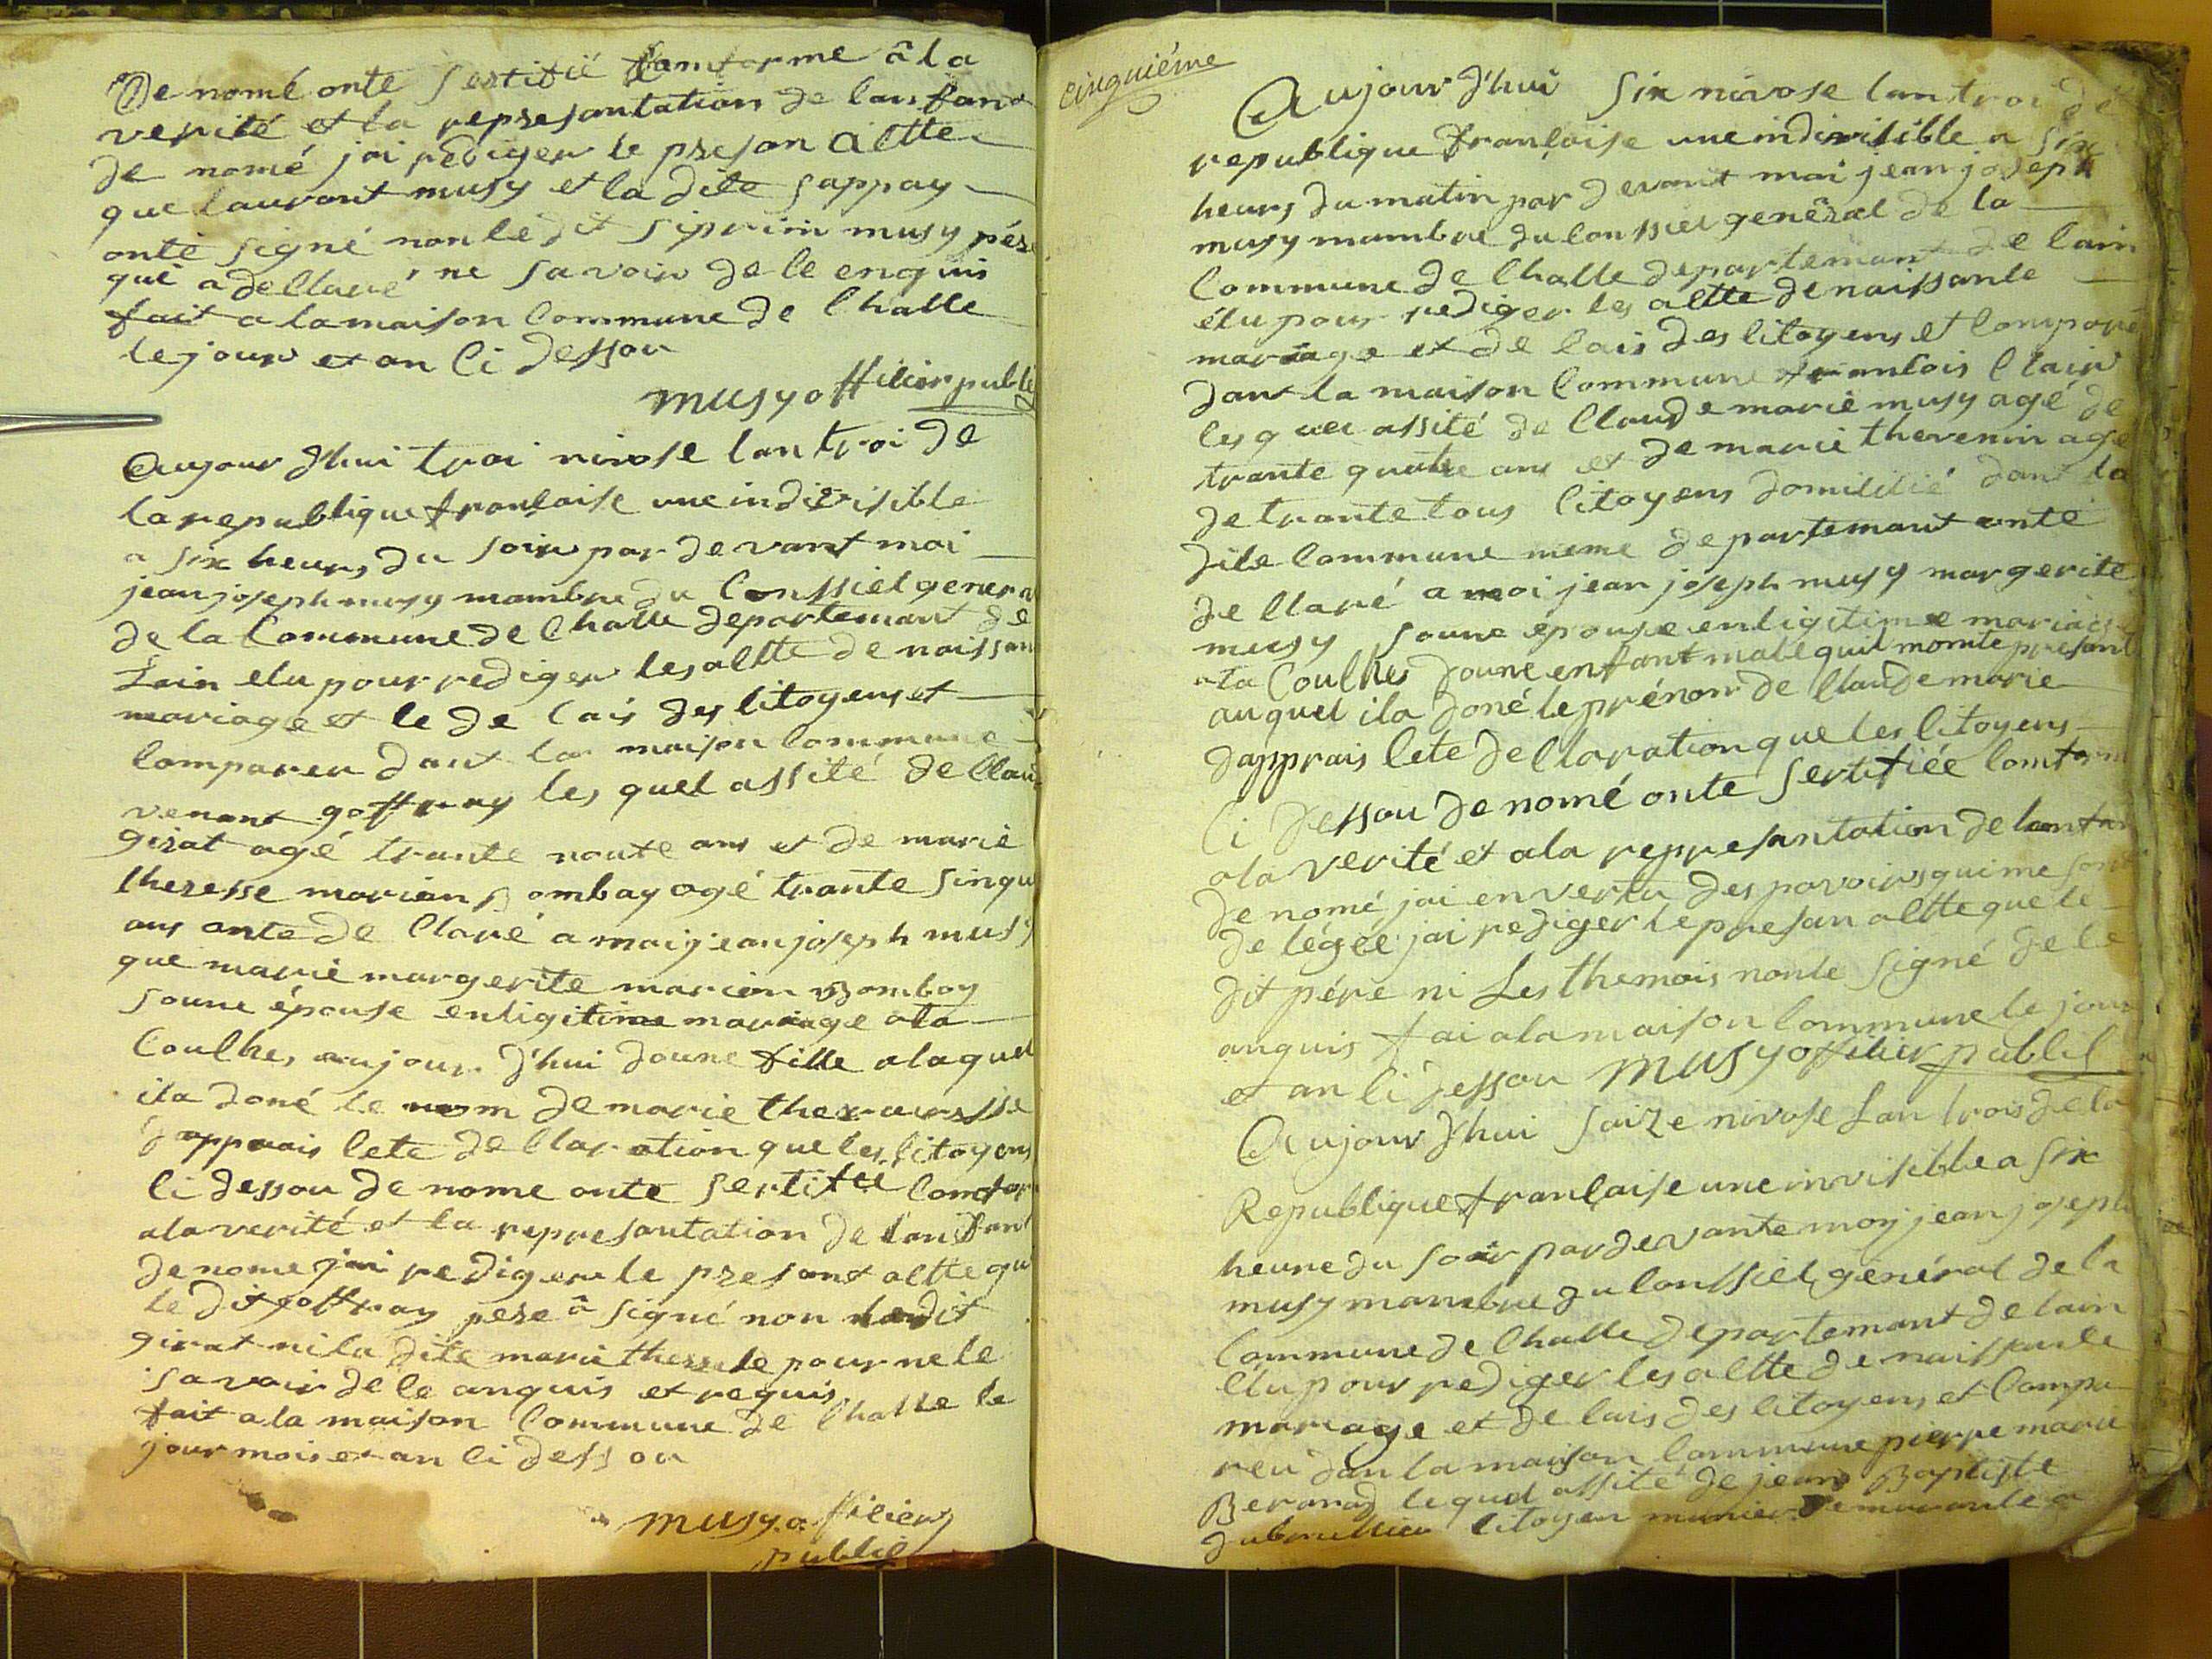 De nomé onte sertifié comforme â la
verité et la representation de lanfan
de nomé jai rediger le preson actte
que laurant musy et la dite sappay
onte signé non le dit siprian musy pére
qui a declaré ne savoir de ce enquis
fait a la maison commune de challe
le jour et an ci dessou
musy officier public
Aujour d'hui troi nivose lan troi de
la republique française une indivisible
a six heurs du soir par devant moi
jean joseph musy mambre du conssiel genera
de la commune de challe departemant de
Lain elu pour rediger les actte de naissan
mariage et le de cais des citoyens et
comparen dant la maison commune
venant goffray les quel assité de clau
girat agé trante noute ans et de marie
theresse marian Bombay agé trante sinqu
ans onte de claré a moi jean joseph musy
que marie margerite marion Bombay
soune épouse en ligitime mariage ata
coulhes aujour d'hui doune fille a laquel
ila doné le nom de marie
d'apprais cete declaration que les citoyens
ci dessou de nome onte sertifié comfor
a la verité et la representation de lanfan
de nome jai rediger le presant actte qu
le dit goffray pere â signé non le dit
girat ni la dite marie theresse pour ne le
savoir de ce anquis et requis
fait a la maison commune de challe le
jour mois et an ci dessou
musy officiers
public
cinquiéme
Aujour d'hui six nivose lan troi de
republique française une indivisible a six
heurs du matin par devant moi jean joseph
musy mambre du conssiel genêral de la
commune de challe departemant de lain
élu pour rediger les actte de naissance
mariage et de cais des citoyens et comparé
dant la maison commune francois clair
lesquel assité de claude marie musy agé de
trante quatre ans et de marie thevenin agé
de trante tous citoyens domicilié dant la
dite commune meme departemant onte
declaré a moi jean joseph musy margerite
musy soune épouse en ligitime mariage
ata coulhes doune enfant male quil momte presant
auquel ila doné le prénom de claude marie
dapprais cete declaration que les citoyens
ci dessou de nomé onte sertifiée comform
a la verité et a la representation de lanfan
de nomé jai en vertu des povoirs qui me son
de légée jai rediger le presan actte que le
dit pére ni Les themois nonte signé de ce
anquis fai a la maison commune le jour
et an ci dessou musy officier public
Aujour d'hui saize nivose Lan trois de la
Republique française une invisible a six
heure du soir par devante moy jean joseph
musy mambre du conssiel général de la
commune de challe departemant de lain
élu pour rediger les actte de naissance
mariage et de cais des citoyens et compa
reu dan la maison commune pierre marie
Berarad lequel assité de jean Baptiste
citoyen munier demurante a